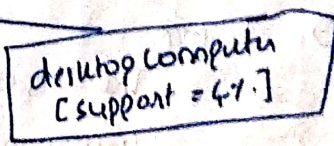 desktop computer
[support = 4%.]